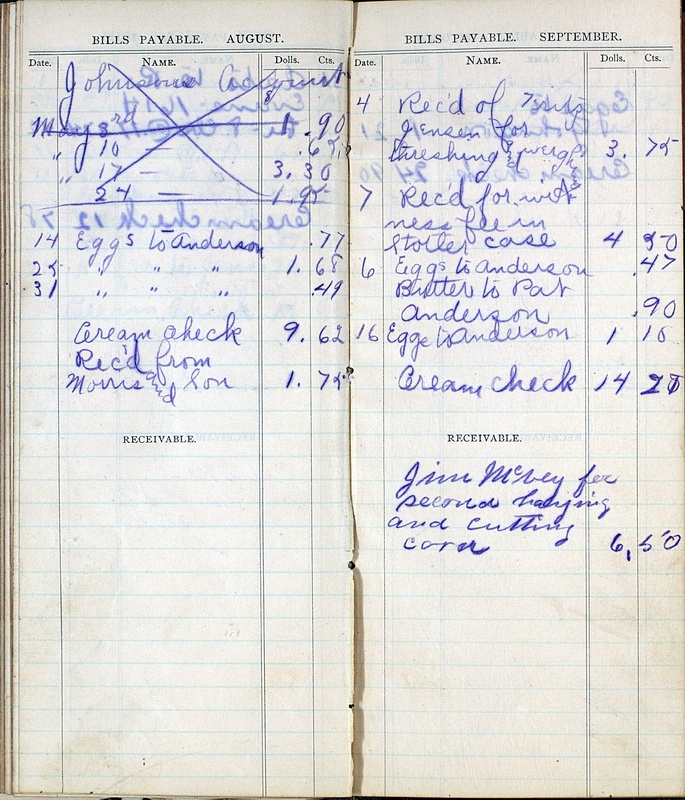 BILLS PAYABLE. AUGUST.
Date. NAME. Dolls. Cts.
Johnsons Account
May 3rd 1.90
" 10 — .65
" 17 — 3.30
24 — 1.95
14 Eggs to Anderson .77
25 " " " 1.68
31 " " " .49
Cream check 9.62
Rec'd from
Morris and Son 1.75
RECEIVABLE.
BILLS PAYABLE. SEPTEMBER.
Date. NAME. Dolls. Cts.
4 Rec'd of
Jensen for
threshing & 3.75
7 Rec'd for wit
ness fee in
case 4 50
6 Eggs to Anderson .47
Butter to Pat
Anderson .90
16 Eggs to Anderson 1 10
Cream check 14
RECEIVABLE.
Jim McVey for
second haying
and cutting
corn 6,50